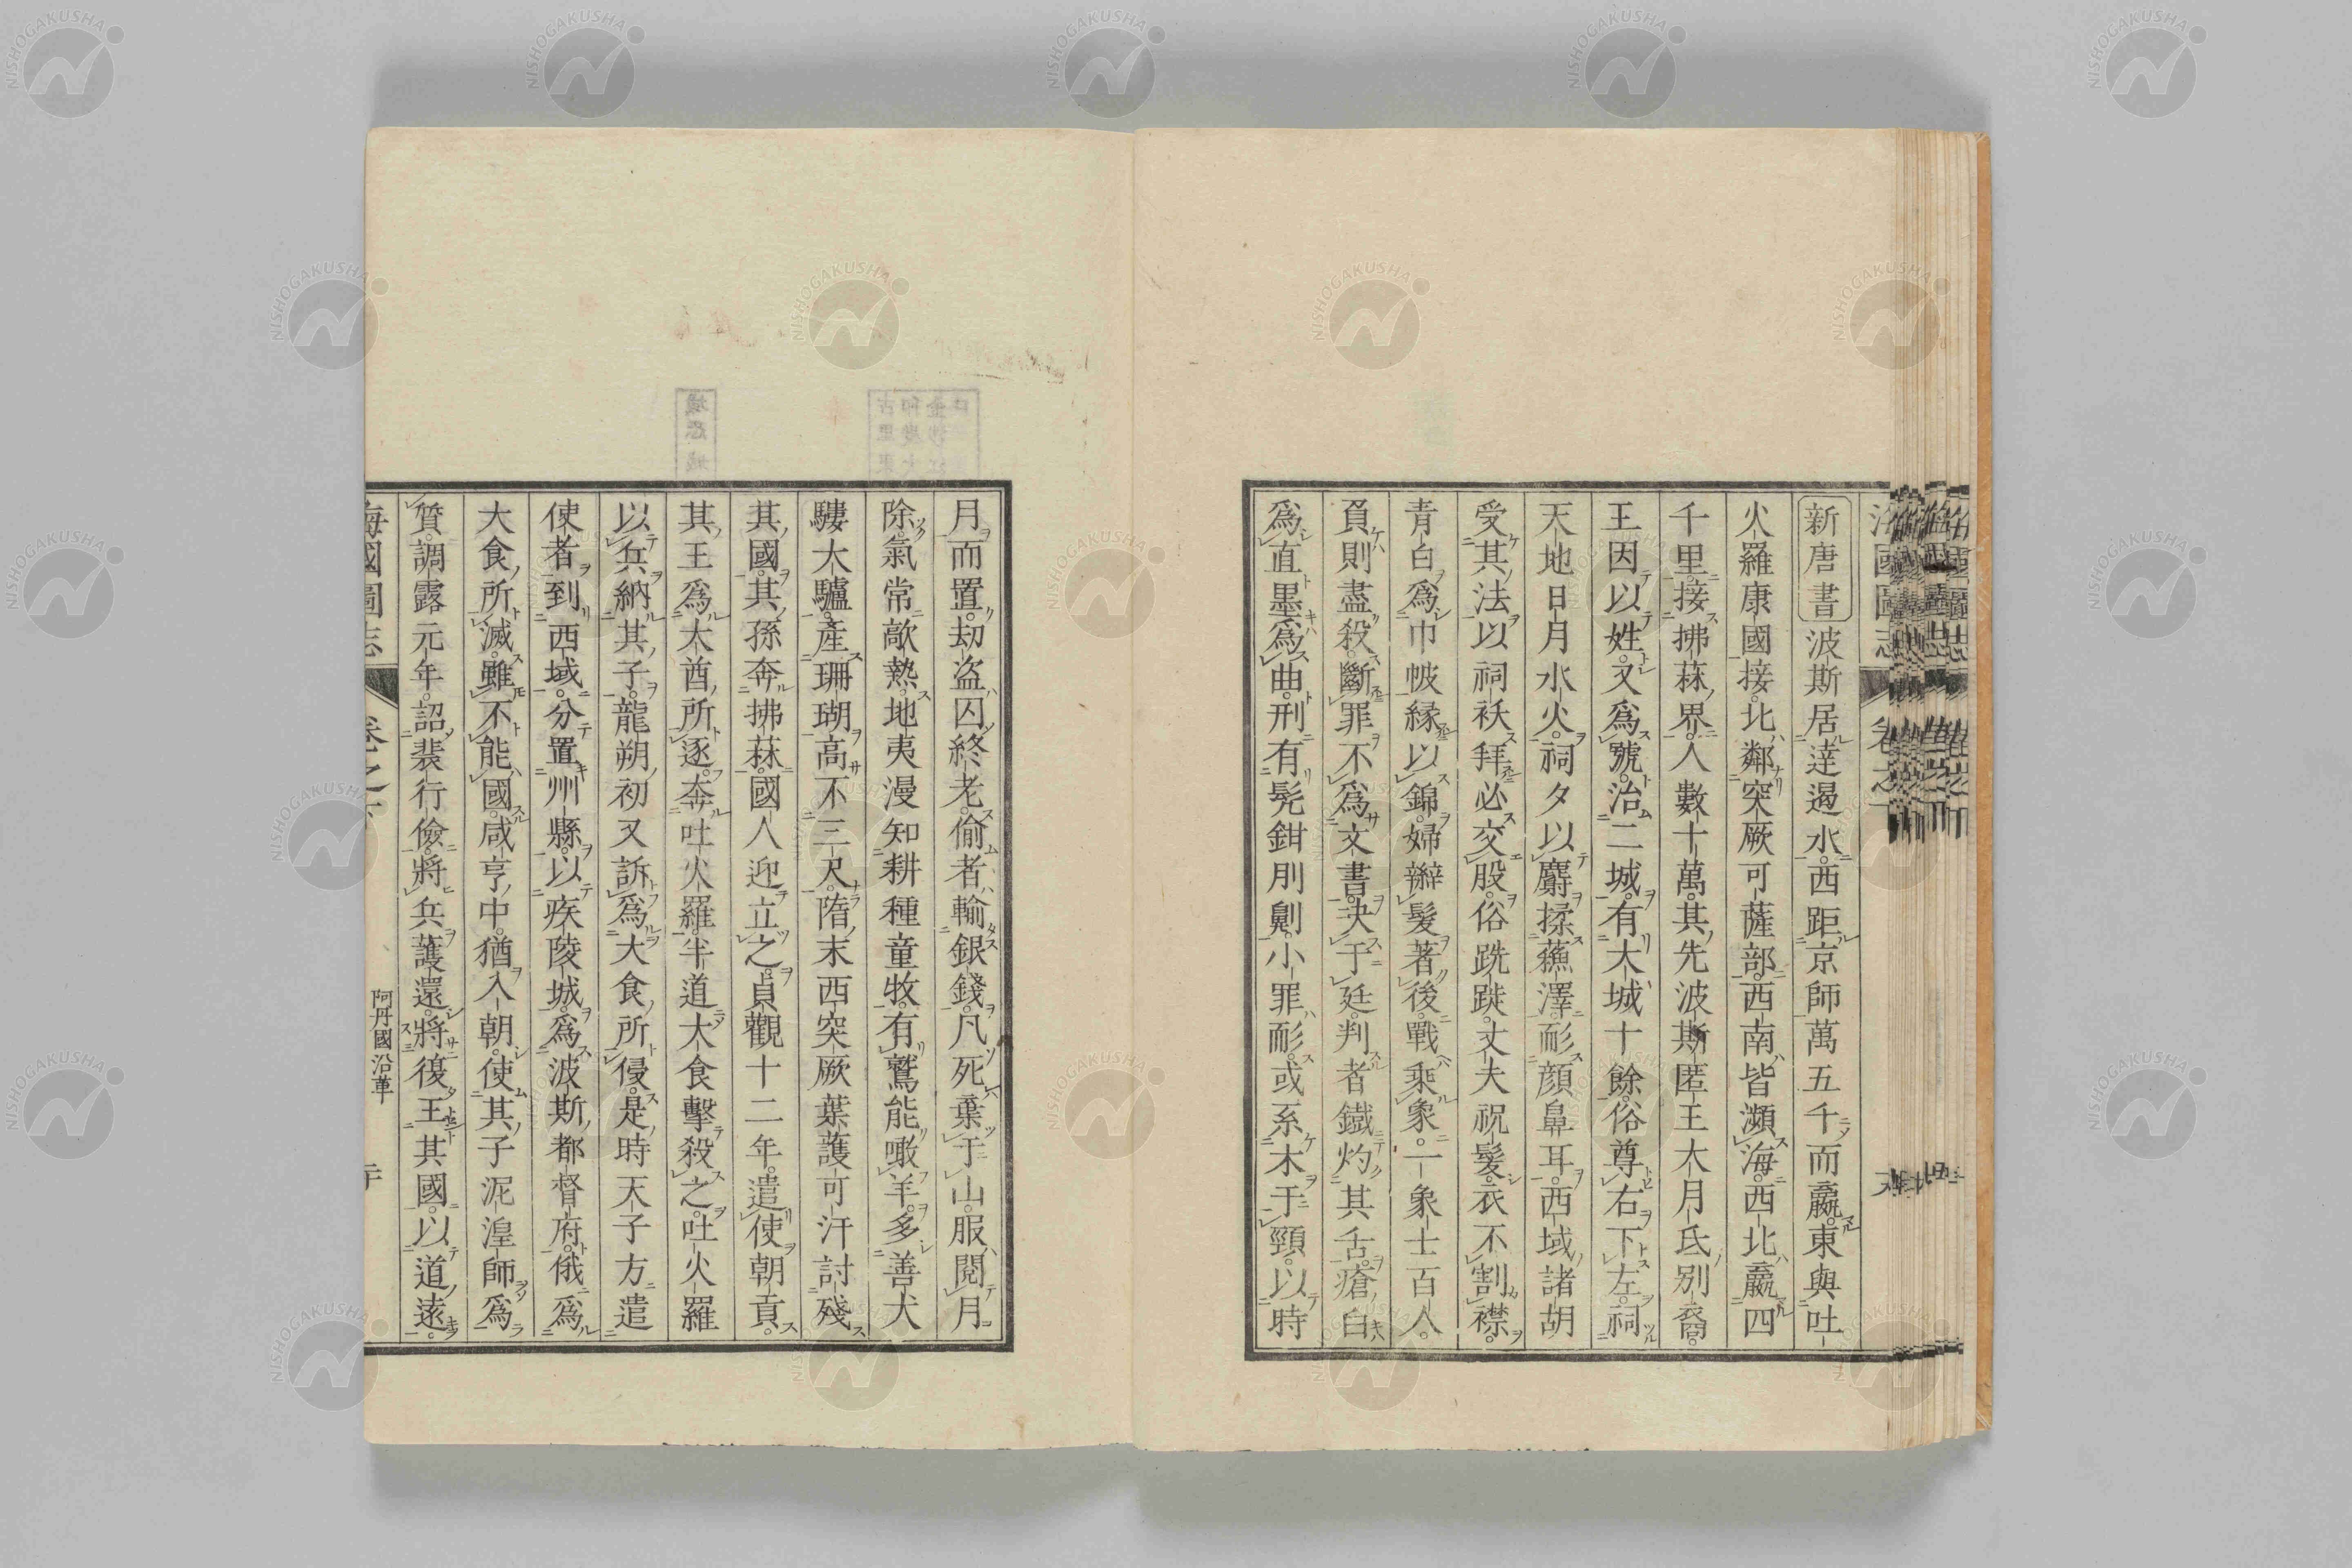 新唐書波斯居達遏水西距京師萬五千而贏東與吐
火羅康國接北鄰突厥可薩部西南皆瀕海西北贏四
千里接拂菻界人數十萬其先波斯匿王大月氏別裔
王因以姓又爲號治二城有大城十餘俗尊右下左祠
天地日月水火祠夕以麝揉蘇澤耏顏鼻耳西域諸胡
受其法以祠祆拜必交股俗跣跣丈夫祝髮衣不割襟
青白爲巾帔緣以錦婦辮髮著後戰乘象一象士百人
負則盡殺斷罪不爲文書決于廷判者鐵灼其舌瘡白
爲直墨爲曲刑有髡鉗刖劓小罪耏或系木于頸以時
月而置劫盜囚終老偷者輸銀錢凡死棄于山服閱月
除氣常歊熱地夷漫知耕種童牧有鷲能噉羊多善犬
騾大驢產珊瑚高不三尺隋末西突厥葉護可汗討殘
其國其孫奔拂菻國人迎立之貞觀十二年遣使朝貢
其王爲大酋所逐奔吐火羅半道大食擊殺之吐火羅
以兵納其子龍朔初又訴爲大食所侵是時天子方遣
使者到西域分置州縣以疾陵城爲波斯都督府俄爲
大食所滅雖不能國咸亨中猶入朝使其子泥湟師爲
質調露元年詔裴行儉將兵護還將復王其國以道遠
海國圖志 卷之
阿丹國沿革
NISHOGAKUSHA